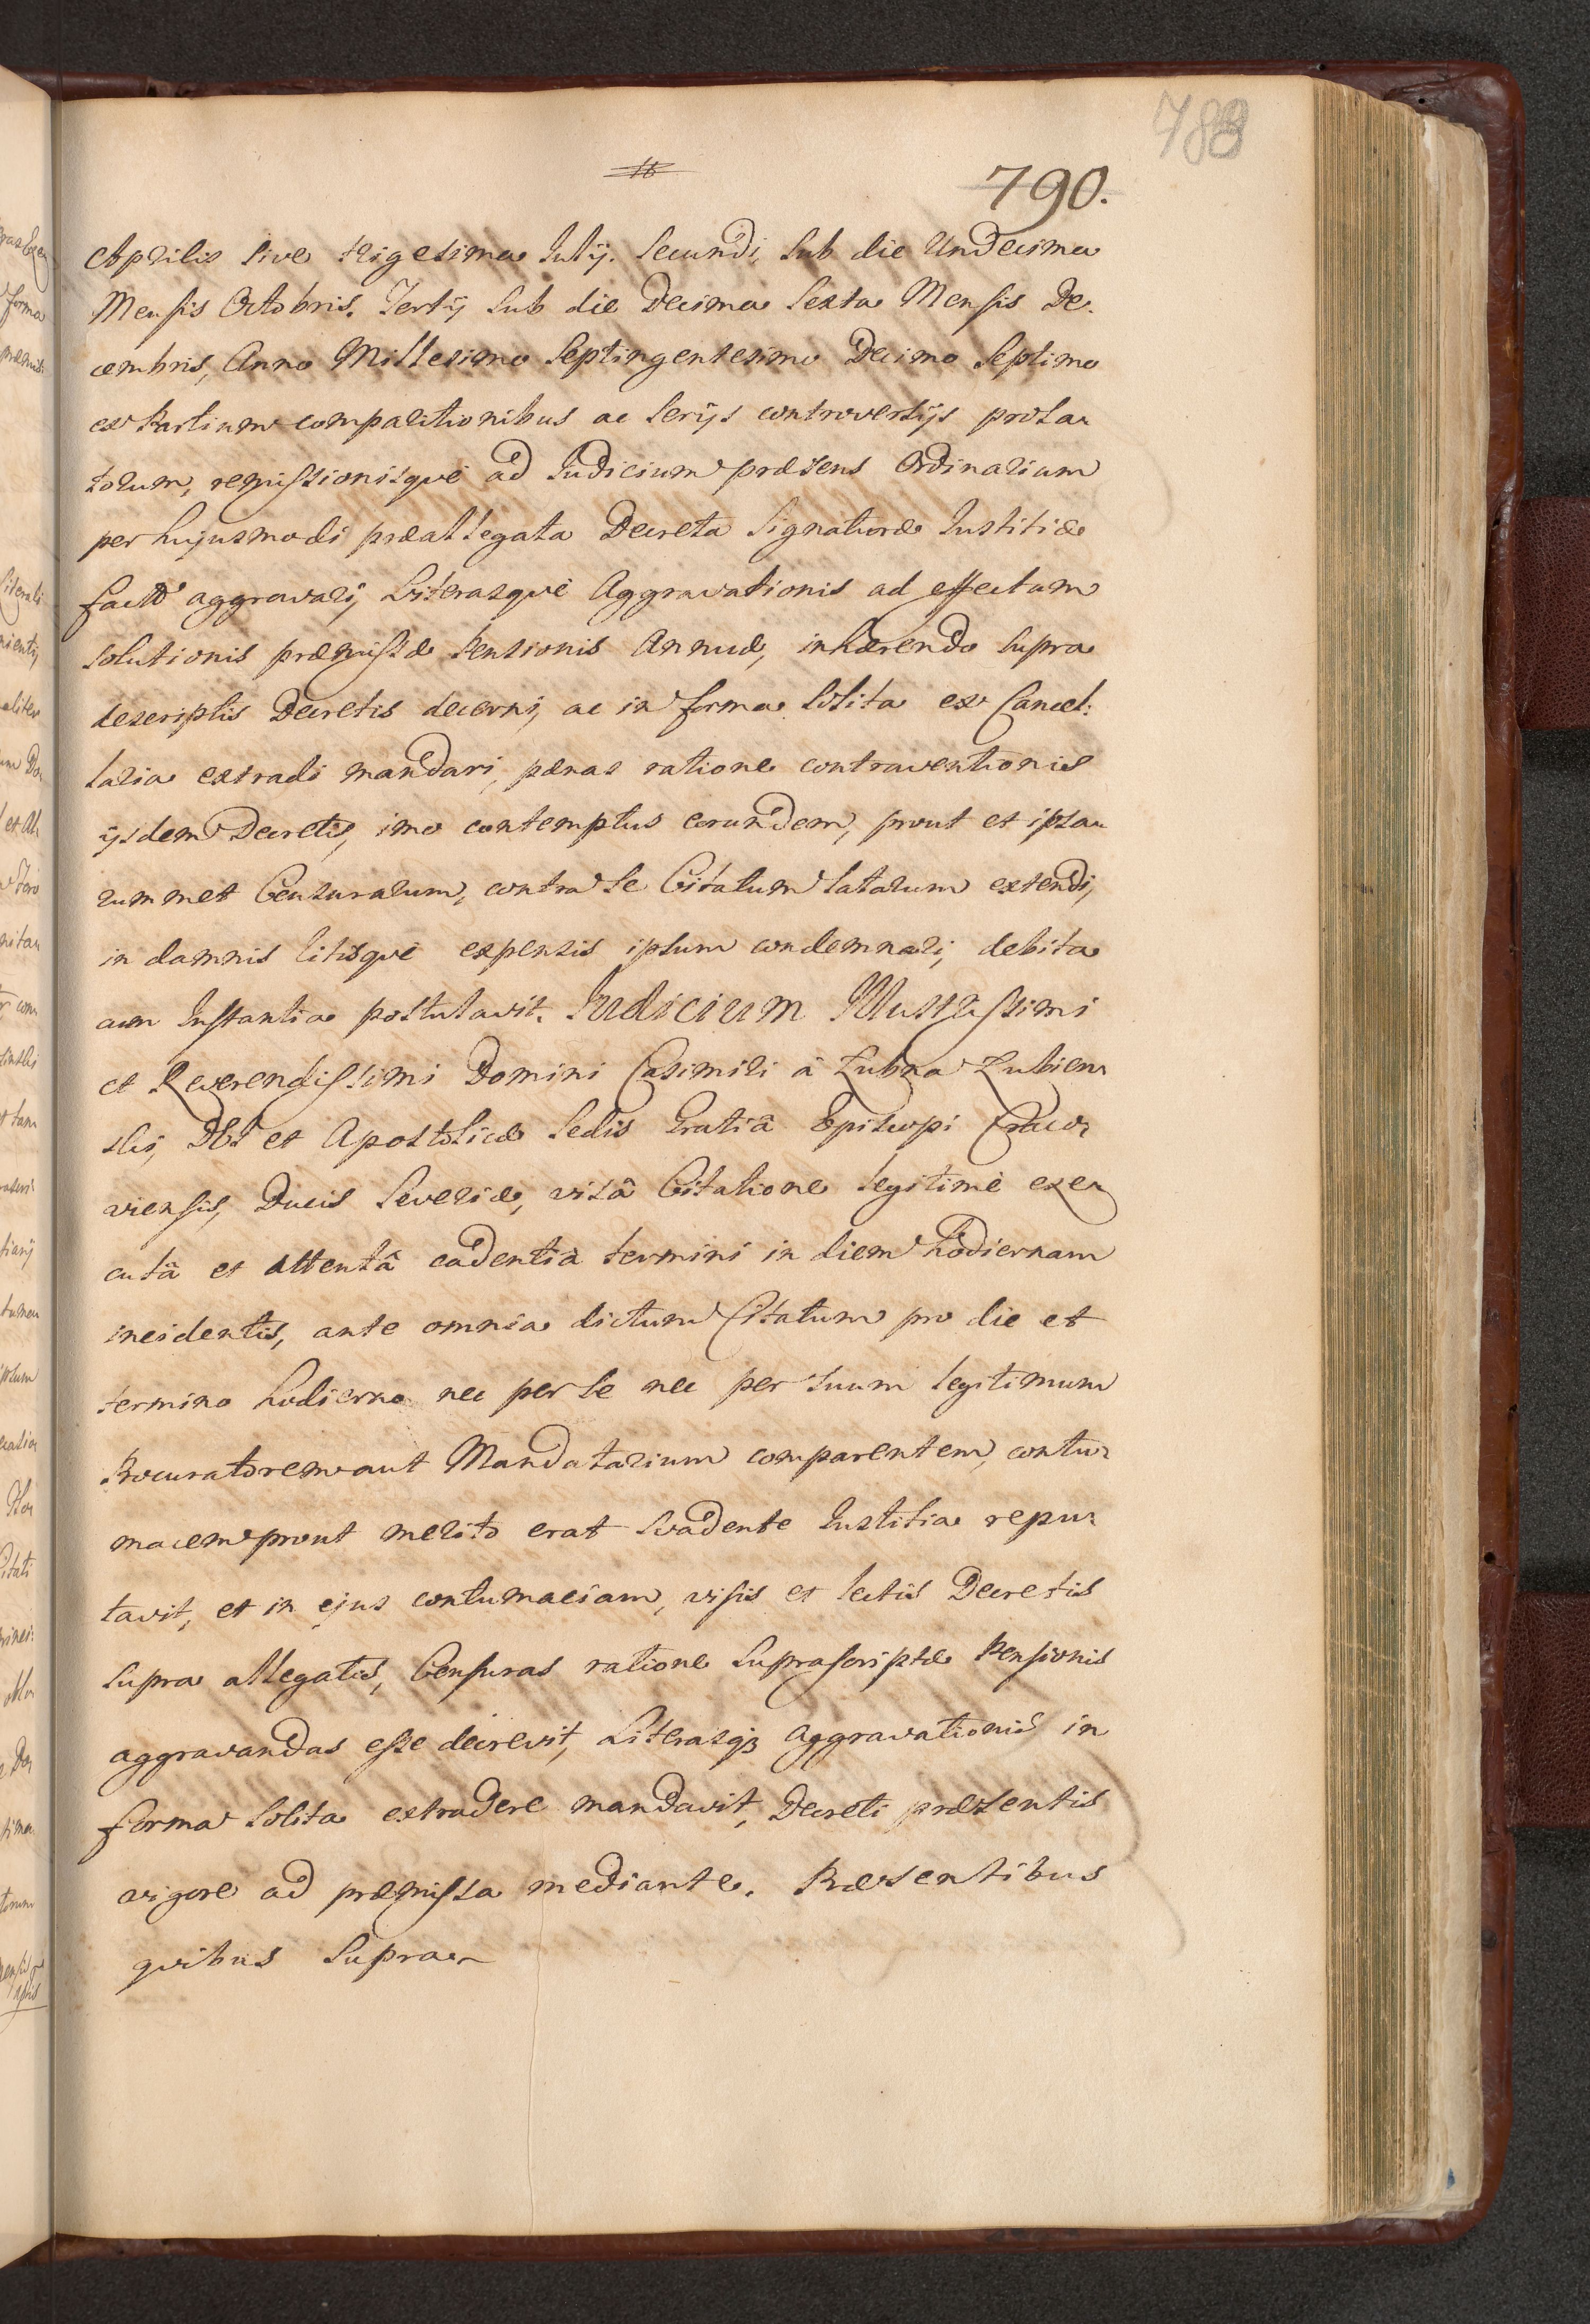 788
16
790.
Aprilis sive trigesima Julij. Secundi, Sub die Undecima
Mensis Octobris. Tertij sub die Decima Sexta Mensis De:
cembris, Anno Millesimo Septingentesimo Decimo Septimo
ex Partium comparitionibus ac serijs controversijs prola-
torum, remissionisquè ad Judicium præsens Ordinarium
per hujusmodi præallegata Decreta Signaturæ Justitiæ
factæ aggravari, Literasquè Aggravationis ad effectum
solutionis præmissæ Pensionis Annuæ, inhærendo supra
descriptis Decretis decerni, ac in forma solita ex Cancel:
laria extradi mandari, pænas ratione contraventionis
ijsdem Decretis, imo contemptus eorundem, prout et ipsa-
rummet Censurarum, contra se Citatum latarum extendi,
in damnis litisquè expensis ipsum condemnari, debita
cum Instantia postulavit. Judicium Illustrissimi
et Reverendissimi Domini Casimiri à Łubna Łubien-
ski, DEI et Apostolicæ Sedis Gratiâ Episcopi Craco-
viensis, Ducis Severiæ, visâ Citatione legitimè exe-
cutâ et attentâ cadentiâ termini in diem hodiernam
incidentis, ante omnia dictum Citatum pro die et
termino hodierno nec per se nec per suum legitimum
Procuratorem aut Mandatarium comparentem, contu-
macem prout merito erat suadente Justitia repu-
tavit, et in ejus contumaciam, visis et lectis Decretis
supra allegatis, Censuras ratione suprascriptæ Pensionis
aggravandas esse decrevit, Literasq; aggravationis in
forma solita extradere mandavit, Decreti præsentis
vigore ad præmissa mediante. Præsentibus
quibus supra